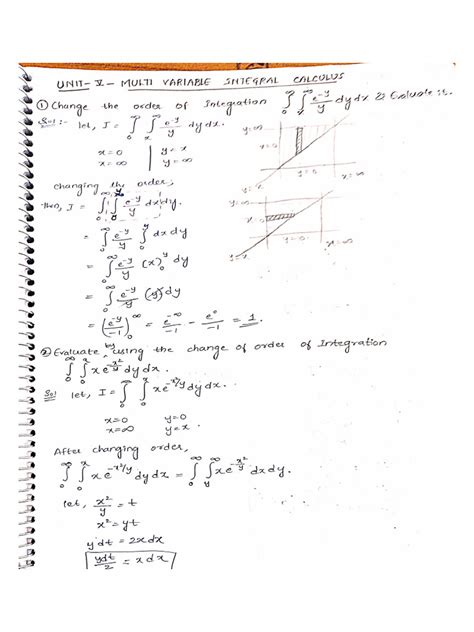 UNIT-V- MULTI VARIABLE INTEGRAL CALCULUS
① Change the order of Integration ∫₀^∞ ∫ₓ^∞ e^-y/y dydx & Evaluate it.
Sol:- let, I = ∫₀^∞ ∫ₓ^∞ e^-y/y dydx.
x=0 | y=x
x=∞ | y=∞
y=∞
y=0
x=0
x=∞
y=x
changing the order,
then, I = ∫₀^∞ ∫₀^y e^-y/y dxdy.
= ∫₀^∞ e^-y/y ∫₀^y dxdy
= ∫₀^∞ e^-y/y (x)₀^y dy
= ∫₀^∞ e^-y/y (y) dy
= (e^-y/-1)₀^∞ = e^-∞/-1 - e^0/-1 = 1.
y=∞
y=0
x=∞
y=x
② Evaluate by using the change of order of Integration
∫₀^∞ ∫₀^x xe^-x²/y dydx.
Sol: let, I = ∫₀^∞ ∫₀^x xe^-x²/y dydx.
x=0 y=0
x=∞ y=x
After changing order,
∫₀^∞ ∫₀^x xe^-x²/y dydx = ∫₀^∞ ∫_y^∞ xe^-x²/y dxdy.
let, x²/y = t
x² = yt
ydt = 2xdx
ydt/2 = xdx